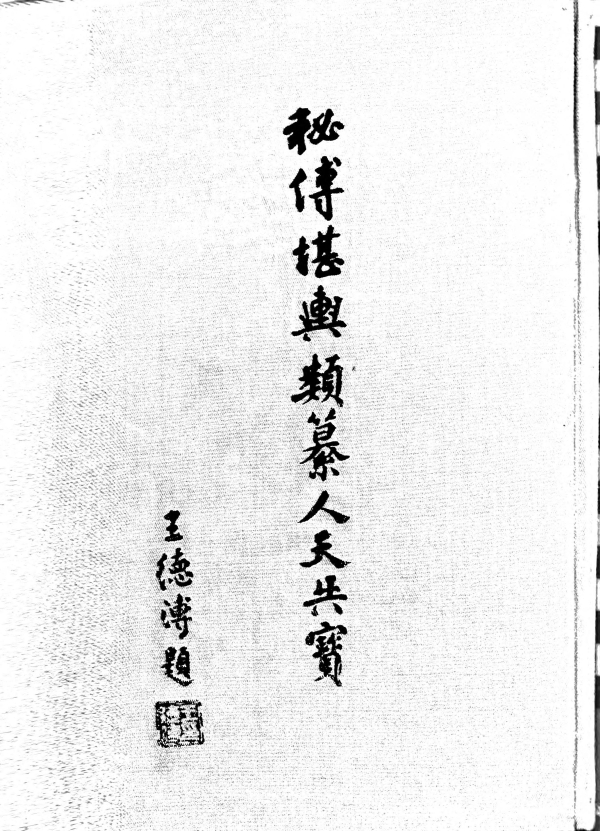 秘傳堪輿類纂人天共寶
王德溥題